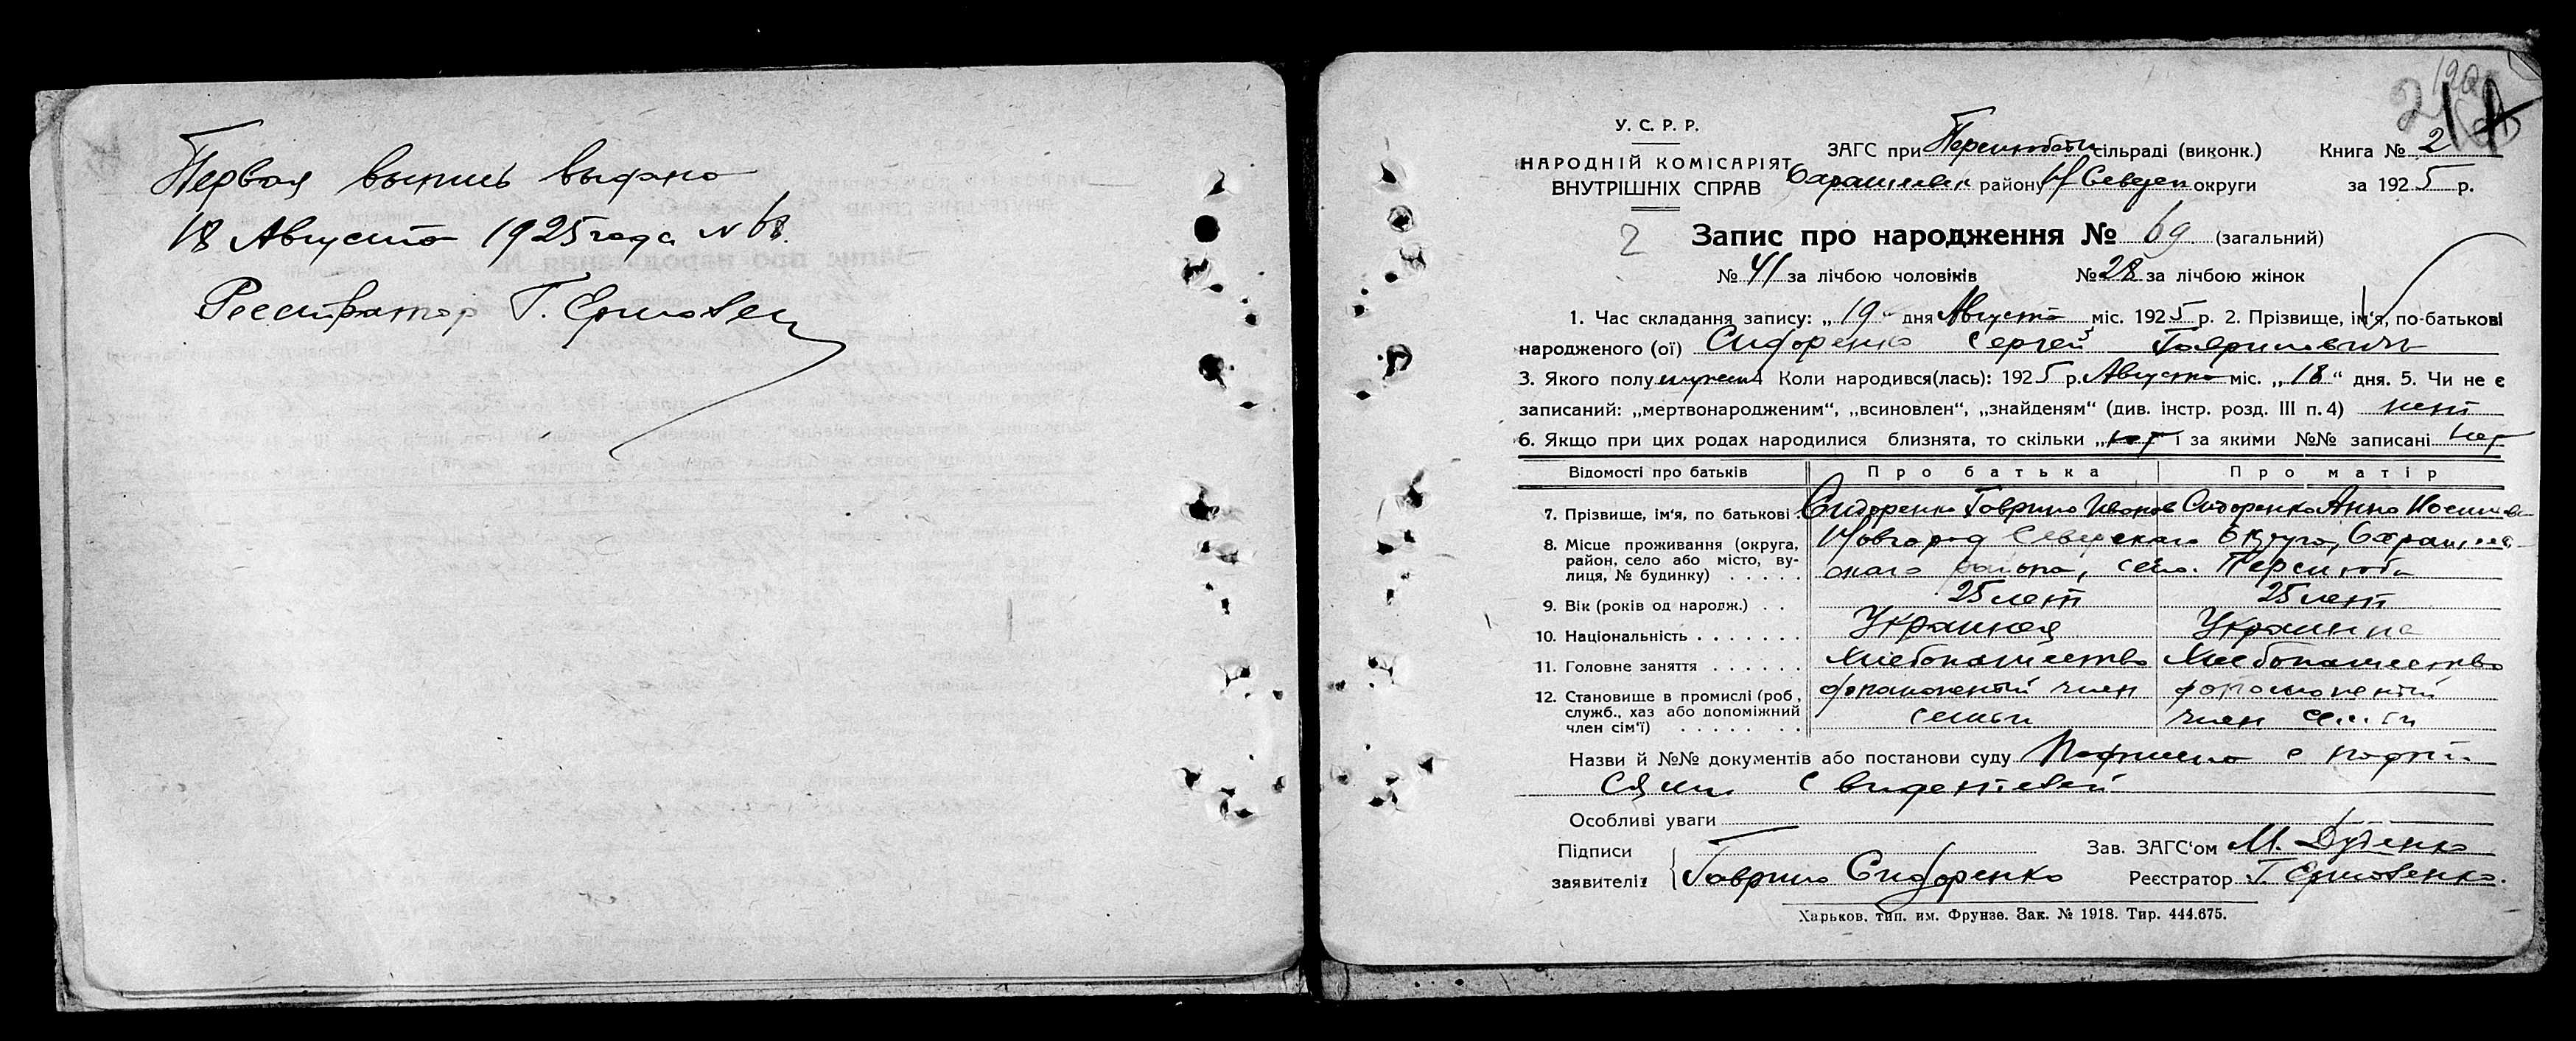 Первая выпись выдана
18 Августа 1925 года № 68.
Реестратор Г. Ермолен
2
У. С. Р. Р.
НАРОДНІЙ КОМІСАРІЯТ
ВНУТРІШНІХ СПРАВ
ЗАГС при сільраді (виконк.)
району Н Северск округи
Книга № 2
за 1925 р.
2
Запис про народження № 69. (загальний)
№ 41 за лічбою чоловіків № 28 за лічбою жінок
1. Час складання запису: „19" дня Августа міс. 1925 р. 2. Прізвище, ім'я, по-батькові
народженого (ої) Сидоренко Сергей Гаврилович
3. Якого полу мужск 4 Коли народився(лась): 1925 р. Августа міс. „18" дня. 5. Чи не є
записаний: „мертвонародженим", „всиновлен", „знайденям" (див. інстр. розд. III п. 4) нет
6. Якщо при цих родах народилися близнята, то скільки „нет і за якими №№ записані нет
Відомості про батьків Про батька Про матір
7. Прізвище, ім'я, по батькові Сидоренко Гаврило Иванов Сидоренко Анна Иосипова
8. Місце проживання (округа, район, село або місто, вулиця, № будинку) Новгород Северского Округа,
ского района, село
9. Вік (років од народж.) 25 лет 25 лет
10. Національність Украинец Украинка
11. Головне заняття Хлебопашество Хлебопашество
12. Становище в промислі (роб, служб., хаз або допоміжний член сім'ї) член семьи член семьи
Назви й №№ документів або постанови суду с
Особливі уваги
Підписи
заявителів Гаврило Сидоренко
Зав. ЗАГС'ом М.
Реєстратор Г. Ермоленко.
Харьков, тип. им. Фрунзе. Зак. № 1918. Тир. 444.675.